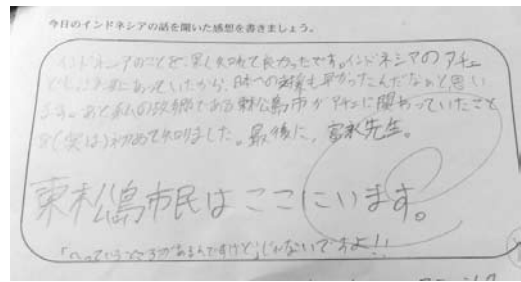 今日のインドネシアの話を聞いた感想を書きましょう。
インドネシアのことを、早く知れて良かったです。インドネシアのアチェ
でも にあっていたから、日本への支援も早かったんだなぁと思い
ます。あと私の故郷である東松島市がアチェに関わっていたこと
を(実は)初めて知りました。最後に、富永先生。
東松島市民はここにいます。
「 っていうところがあるんですけど」じゃないですよ!!